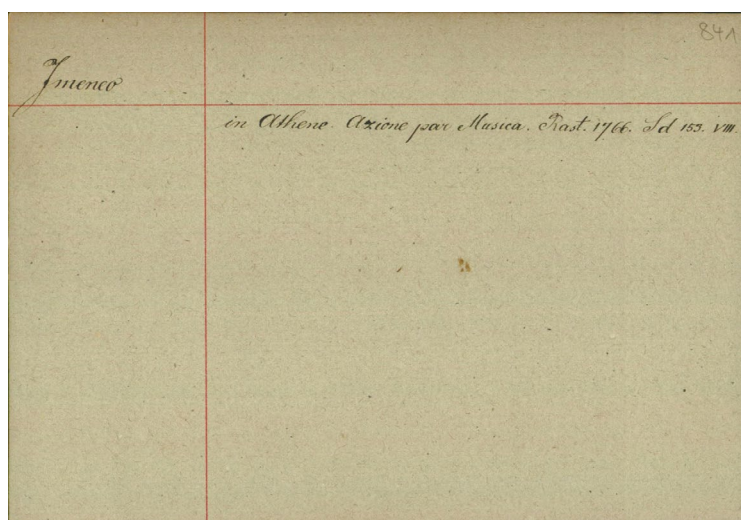 841
Imeneo
in Atheno. Azione par Musica. Rast. 1766. Sd 153. VIII.